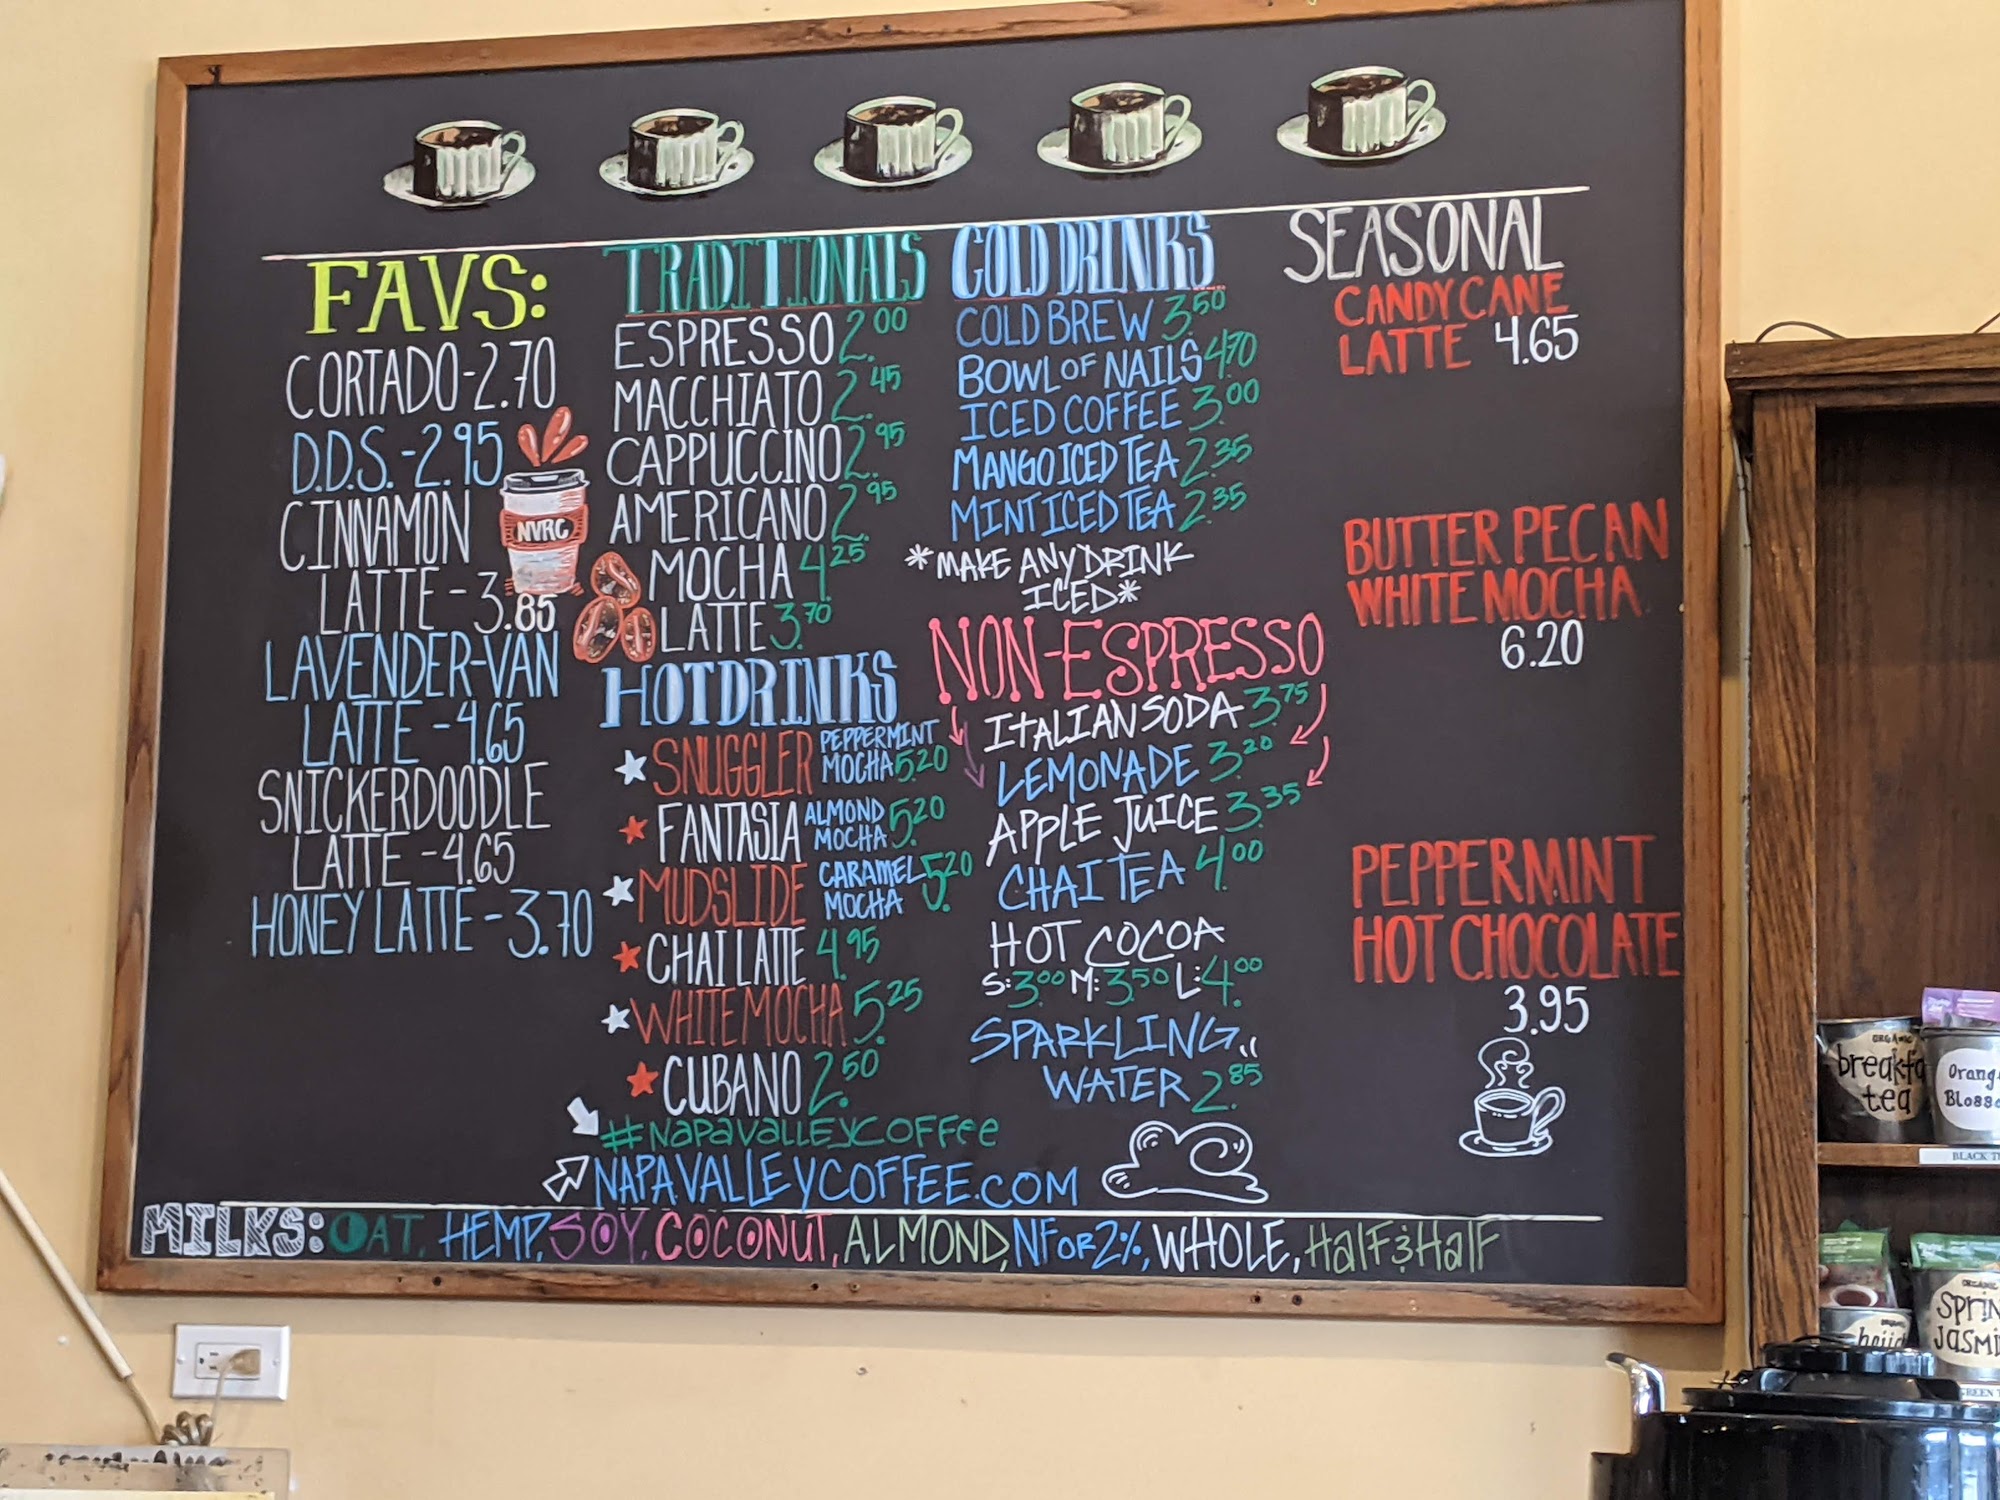 FAVS:
CORTADO-2.70
D.D.S.-2.95
CINNAMON
LATTE-3.85
LAVENDER-VAN
LATTE-4.65
SNICKERDOODLE
LATTE-4.65
HONEY LATTE-3.70
NVRC
TRADITIONALS
ESPRESSO 2.00
MACCHIATO 2.45
CAPPUCCINO 2.95
AMERICANO 2.95
MOCHA 4.25
LATTE 3.70
HOT DRINKS
SNUGGLER PEPPERMINT
MOCHA 5.20
FANTASIA ALMOND
MOCHA 5.20
MUDSLIDE CARAMEL
MOCHA 5.20
CHAI LATTE 4.95
WHITE MOCHA 5.25
CUBANO 2.50
#NAPAVALLEYCOFFEE
NAPAVALLEYCOFFEE.COM
COLD DRINKS
COLD BREW 3.50
BOWL OF NAILS 4.70
ICED COFFEE 3.00
MANGO ICED TEA 2.35
MINT ICED TEA 2.35
*MAKE ANY DRINK
ICED*
NON-ESPRESSO
ITALIAN SODA 3.75
LEMONADE 3.20
APPLE JUICE 3.35
CHAI TEA 4.00
HOT COCOA
S:3.00 M:3.50 L:4.00
SPARKLING
WATER 2.85
SEASONAL
CANDY CANE
LATTE 4.65
BUTTER PECAN
WHITE MOCHA
6.20
PEPPERMINT
HOT CHOCOLATE
3.95
MILKS: OAT, HEMP, SOY, COCONUT, ALMOND, NF OR 2%, WHOLE, HALF & HALF
ORGANIC
breakfa
tea
Orang
Blosso
BLACK T
ORGANIC
SPRIN
JASMI
GREEN T